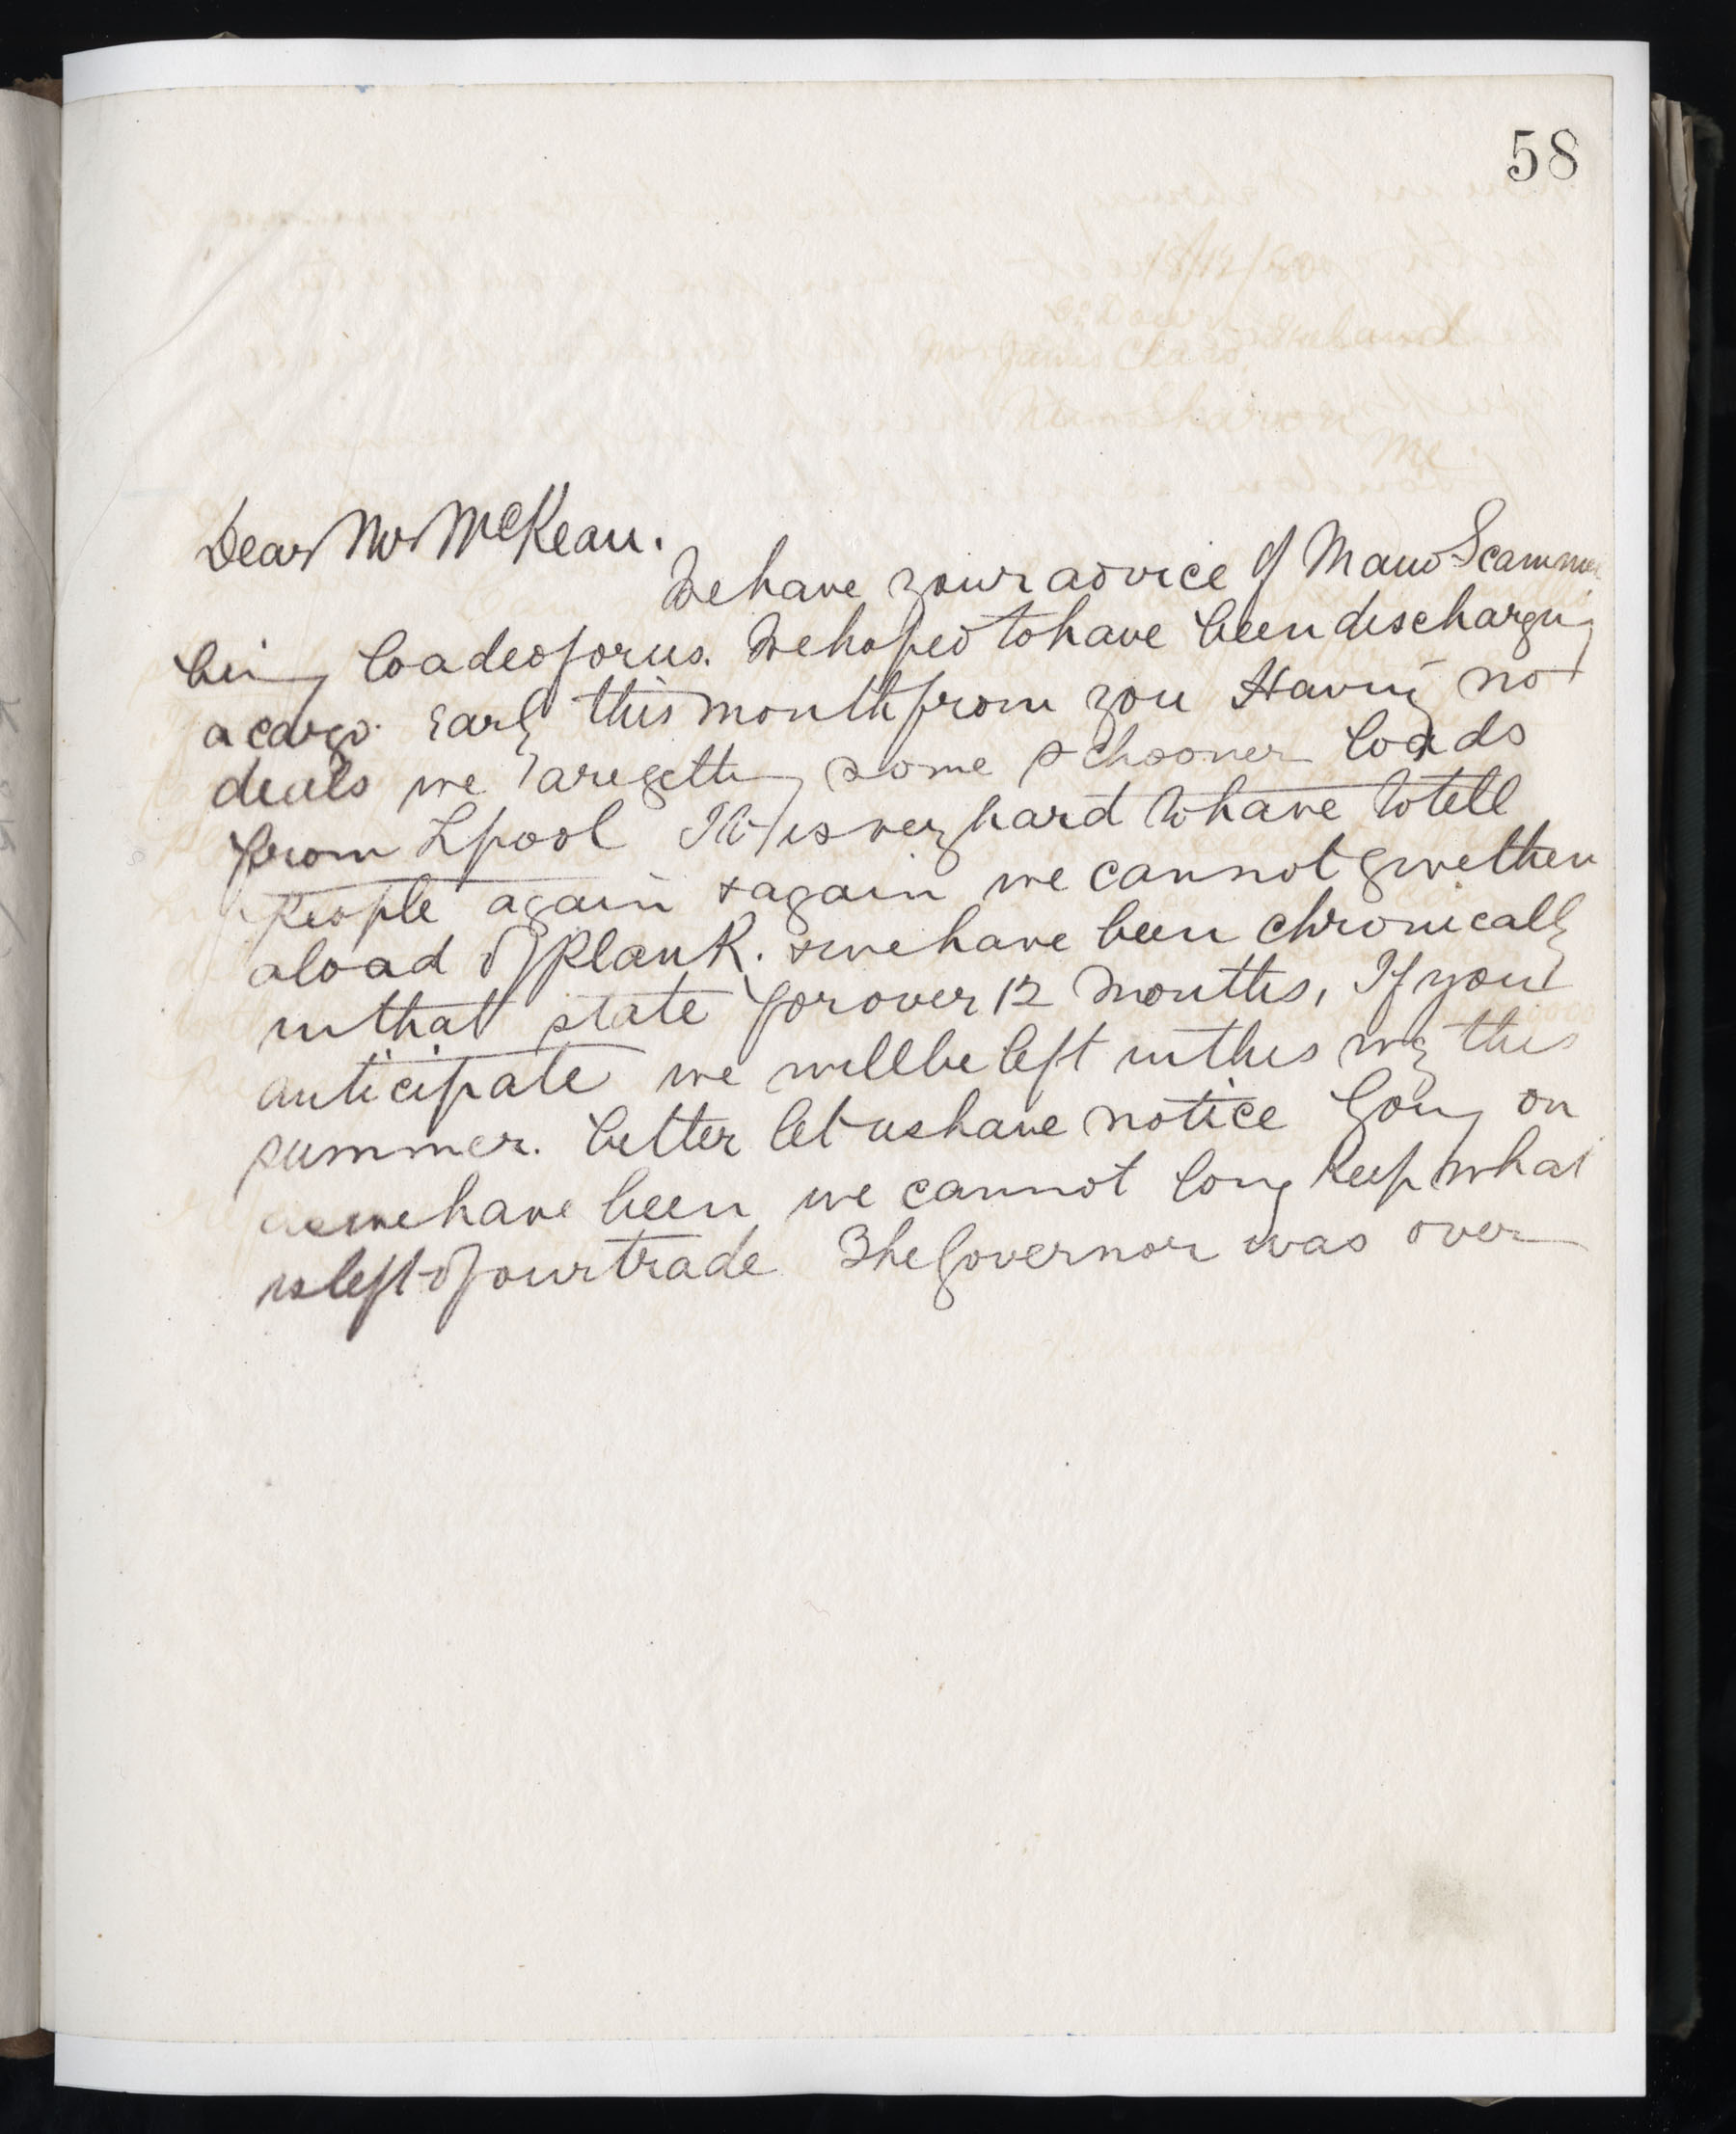 58
Dear Mr McKean.
We have your advice of Maud Scammel
being loaded for us. We hoped to have been discharging
a cargo early this month from you Having no
deals we are getting some schooner loads
from Lpool It is very hard to have to tell
people again & again we cannot give them
a load of plank. & we have been chronically
in that state for over 12 months, If you
anticipate we will be left in this way this
summer. better let us have notice Going on
as we have been we cannot long keep what
is left of our trade The Governor was over